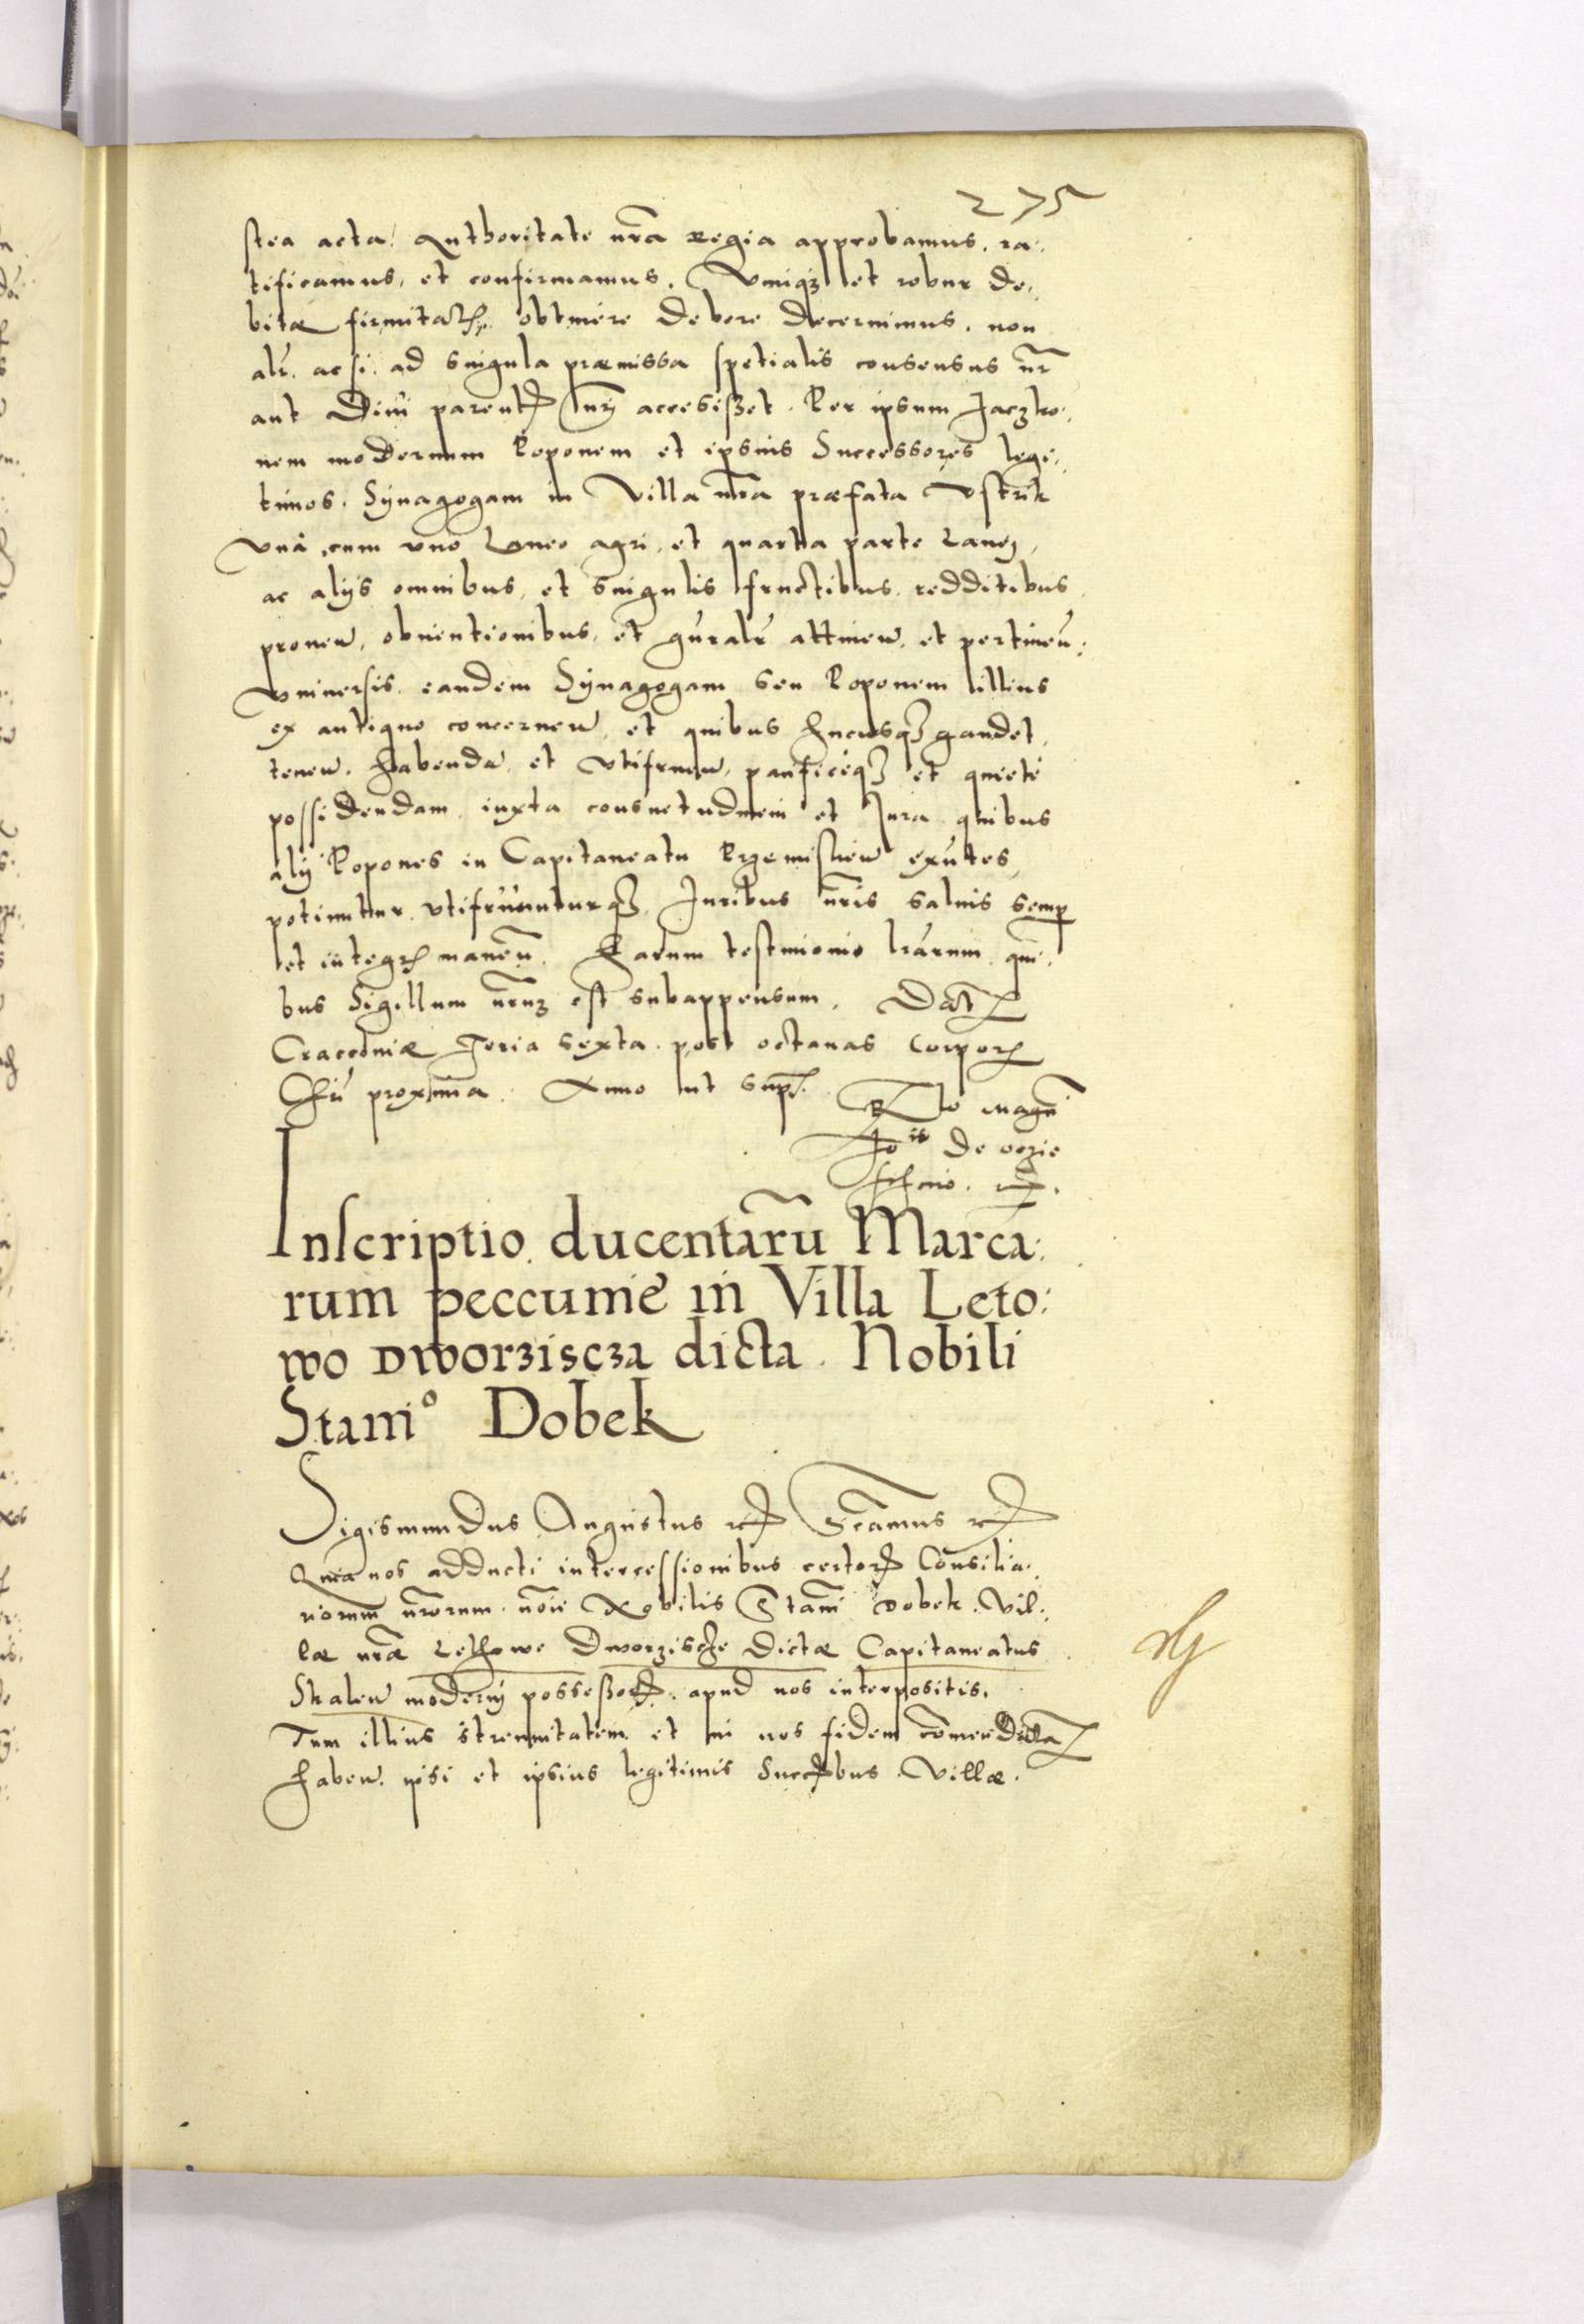 275
stea acta. Authoritate nrã Regia approbamus, ra:
tificamus, et confirmamus. Vimqz et robur de:
bitæ firmitatis obtinere debere decernimus. non
alr̃. ac si ad singula præmissa spetialis consensus nr̃
aut Diui parentis nrj accesißet. Per ipsum Jaczko:
nem modernum Poponem et ipsius Successores legi:
timos. Synagogam in Villa nrã præfata Vstrik
vna cum vno Laneo agri, et quarta parte Lanej,
ac alijs omnibus, et singulis fructibus, redditibus,
prouen, obuentionibus, et gńralr̃ attinen, et pertineń:
Vniuersis eandem Synagogam seu Poponem illius
ex antiquo concernen, et quibus hucusqz gaudet,
tenen. habenda et vtifruen, pacificeqz et quiete
possidendam iuxta consuetudinem et Jura quibus
alij Popones in Capitaneatu Przemislien exńtes,
potiuntur vtifruunturqz. Juribus nr̃is saluis semp
et integris maneń. Harum testimonio lrãrum qui:
bus Sigillum nrũz est subappensum. Datum
Cracouiæ Feria sexta post octauas Corporis
Chri proxima. Anno ut supra.
Rlo magń
Jois de oczie
schino. rp.
Inscriptio ducentarũ Marca:
rum peccunię in Villa Leto:
wo Dworzіscza dicta. Nobili
Stani° Dobek
Sigismundus Augustus etc Significamus etc
Quia nos adducti intercessionibus certorum Consilia:
riorum nrõrum nõie Nobilis Stani Dobek. Vil:
læ nrã Lethowe Dworzische dictæ Capitaneatus
Skalen modernj posseßoris. apud nos interpositis.
Tum illius strenuitatem et in nos fidem cõmendatam
haben. ipsi et ipsius legitimis Succribus. Villæ.